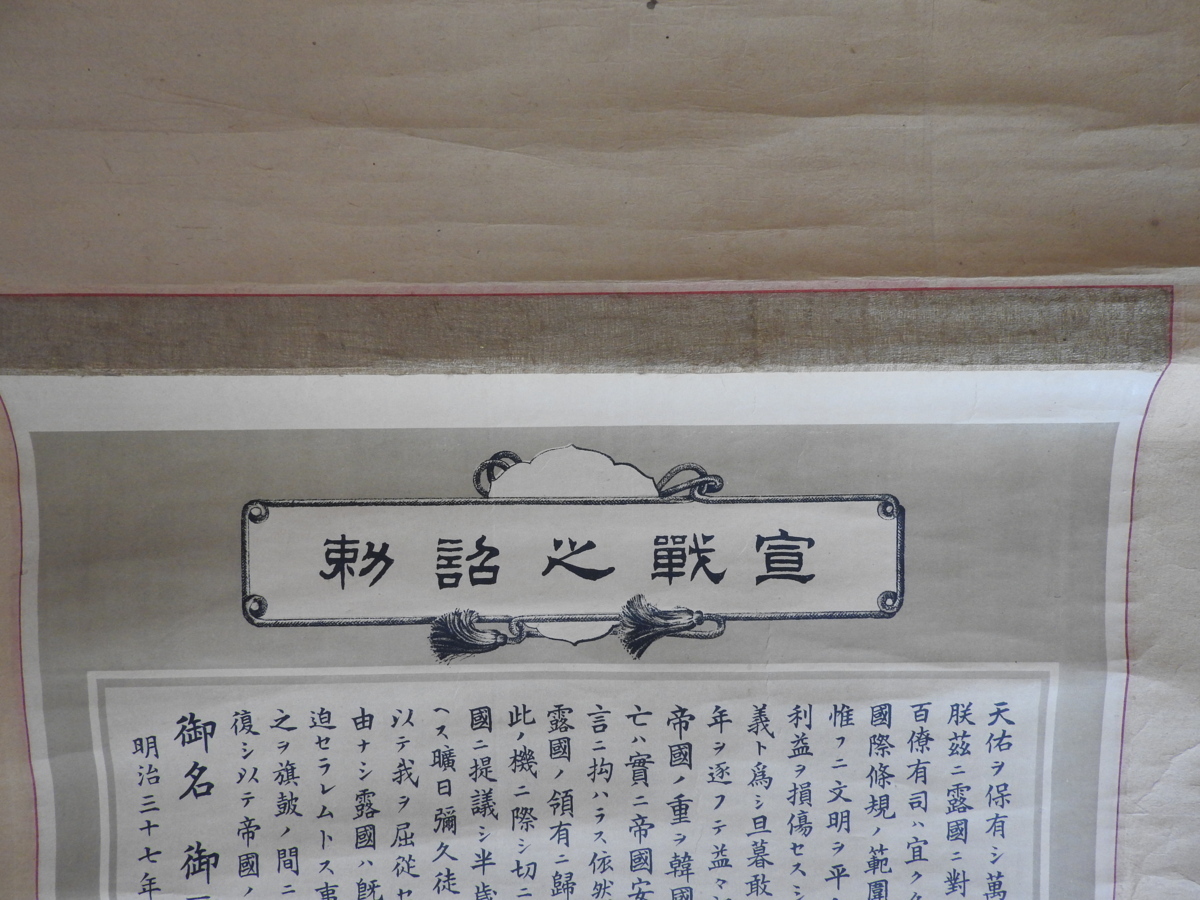 宣戰之詔勅
天佑ヲ保有シ萬
朕茲ニ露國ニ對
百僚有司ハ宜ク
國際條規ノ範圍
惟フニ文明ヲ平
利益ヲ損傷セスシ
義ト爲シ旦暮敢
年ヲ逐フテ益々
帝國ノ重ヲ韓國
亡ハ實ニ帝國安
言ニ拘ハラス依然
露國ノ領有ニ歸
此ノ機ニ際シ切ニ
國ニ提議シ半歲
ヘス曠日彌久徒
以テ我ヲ屈從セ
由ナシ露國ハ旣
迫セラレムトス事
之ヲ旗鼓ノ間ニ
復シ以テ帝國ノ
御名 御
明治三十七年